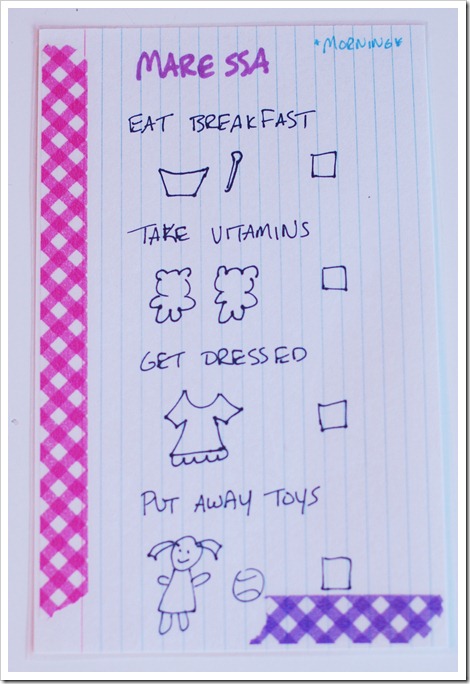 MARESSA
*MORNING*
EAT BREAKFAST
TAKE VITAMINS
GET DRESSED
PUT AWAY TOYS